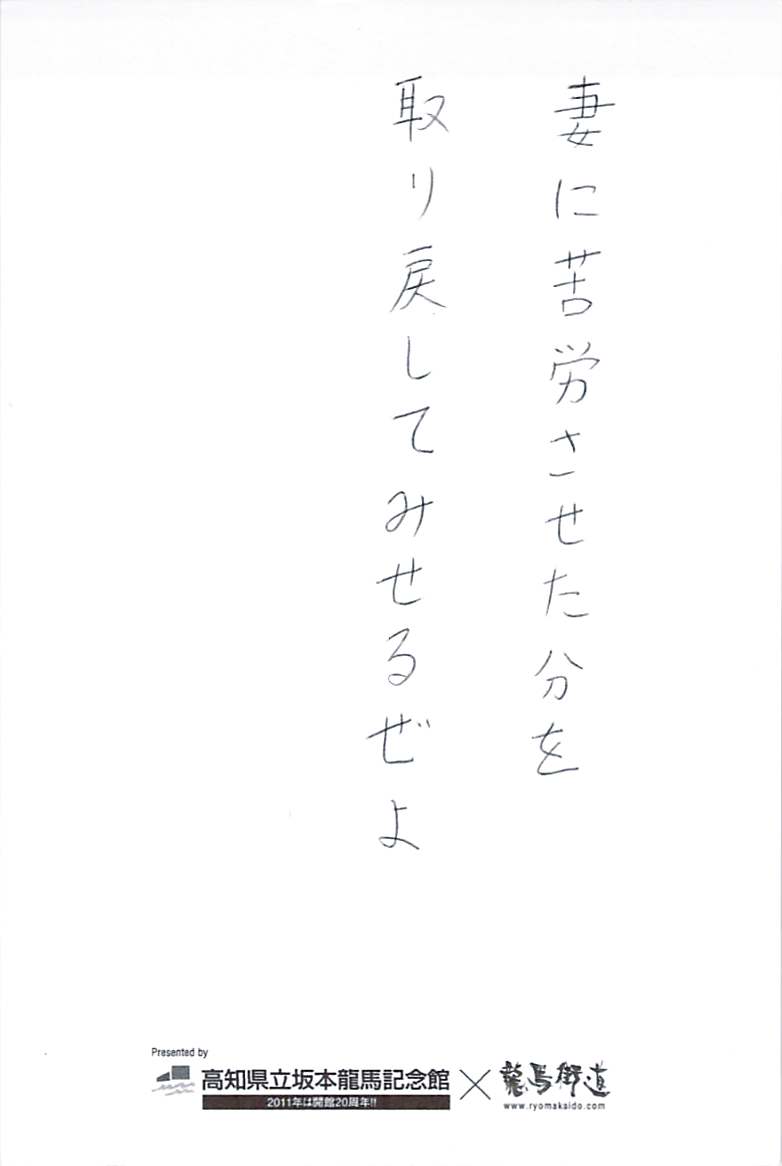 妻に苦労させた分を
取り戻してみせるぜよ
Presented by
高知県立坂本龍馬記念館 × 龍馬街道
2011年は開館20周年!!
www.ryomakaido.com